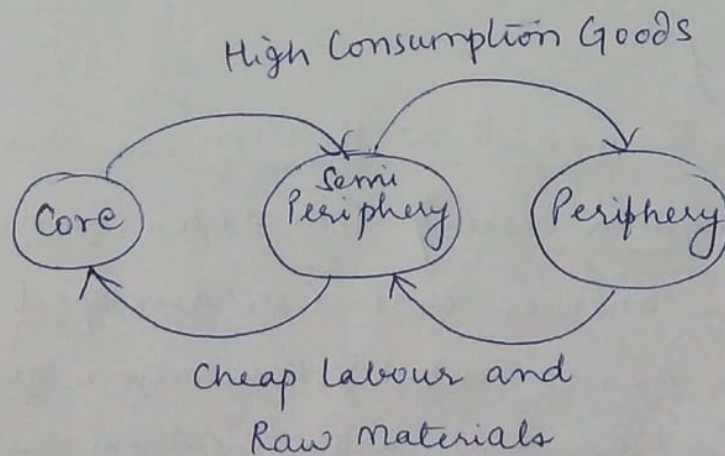 High Consumption Goods
Core
Semi
Periphery
Periphery
Cheap Labour and
Raw Materials